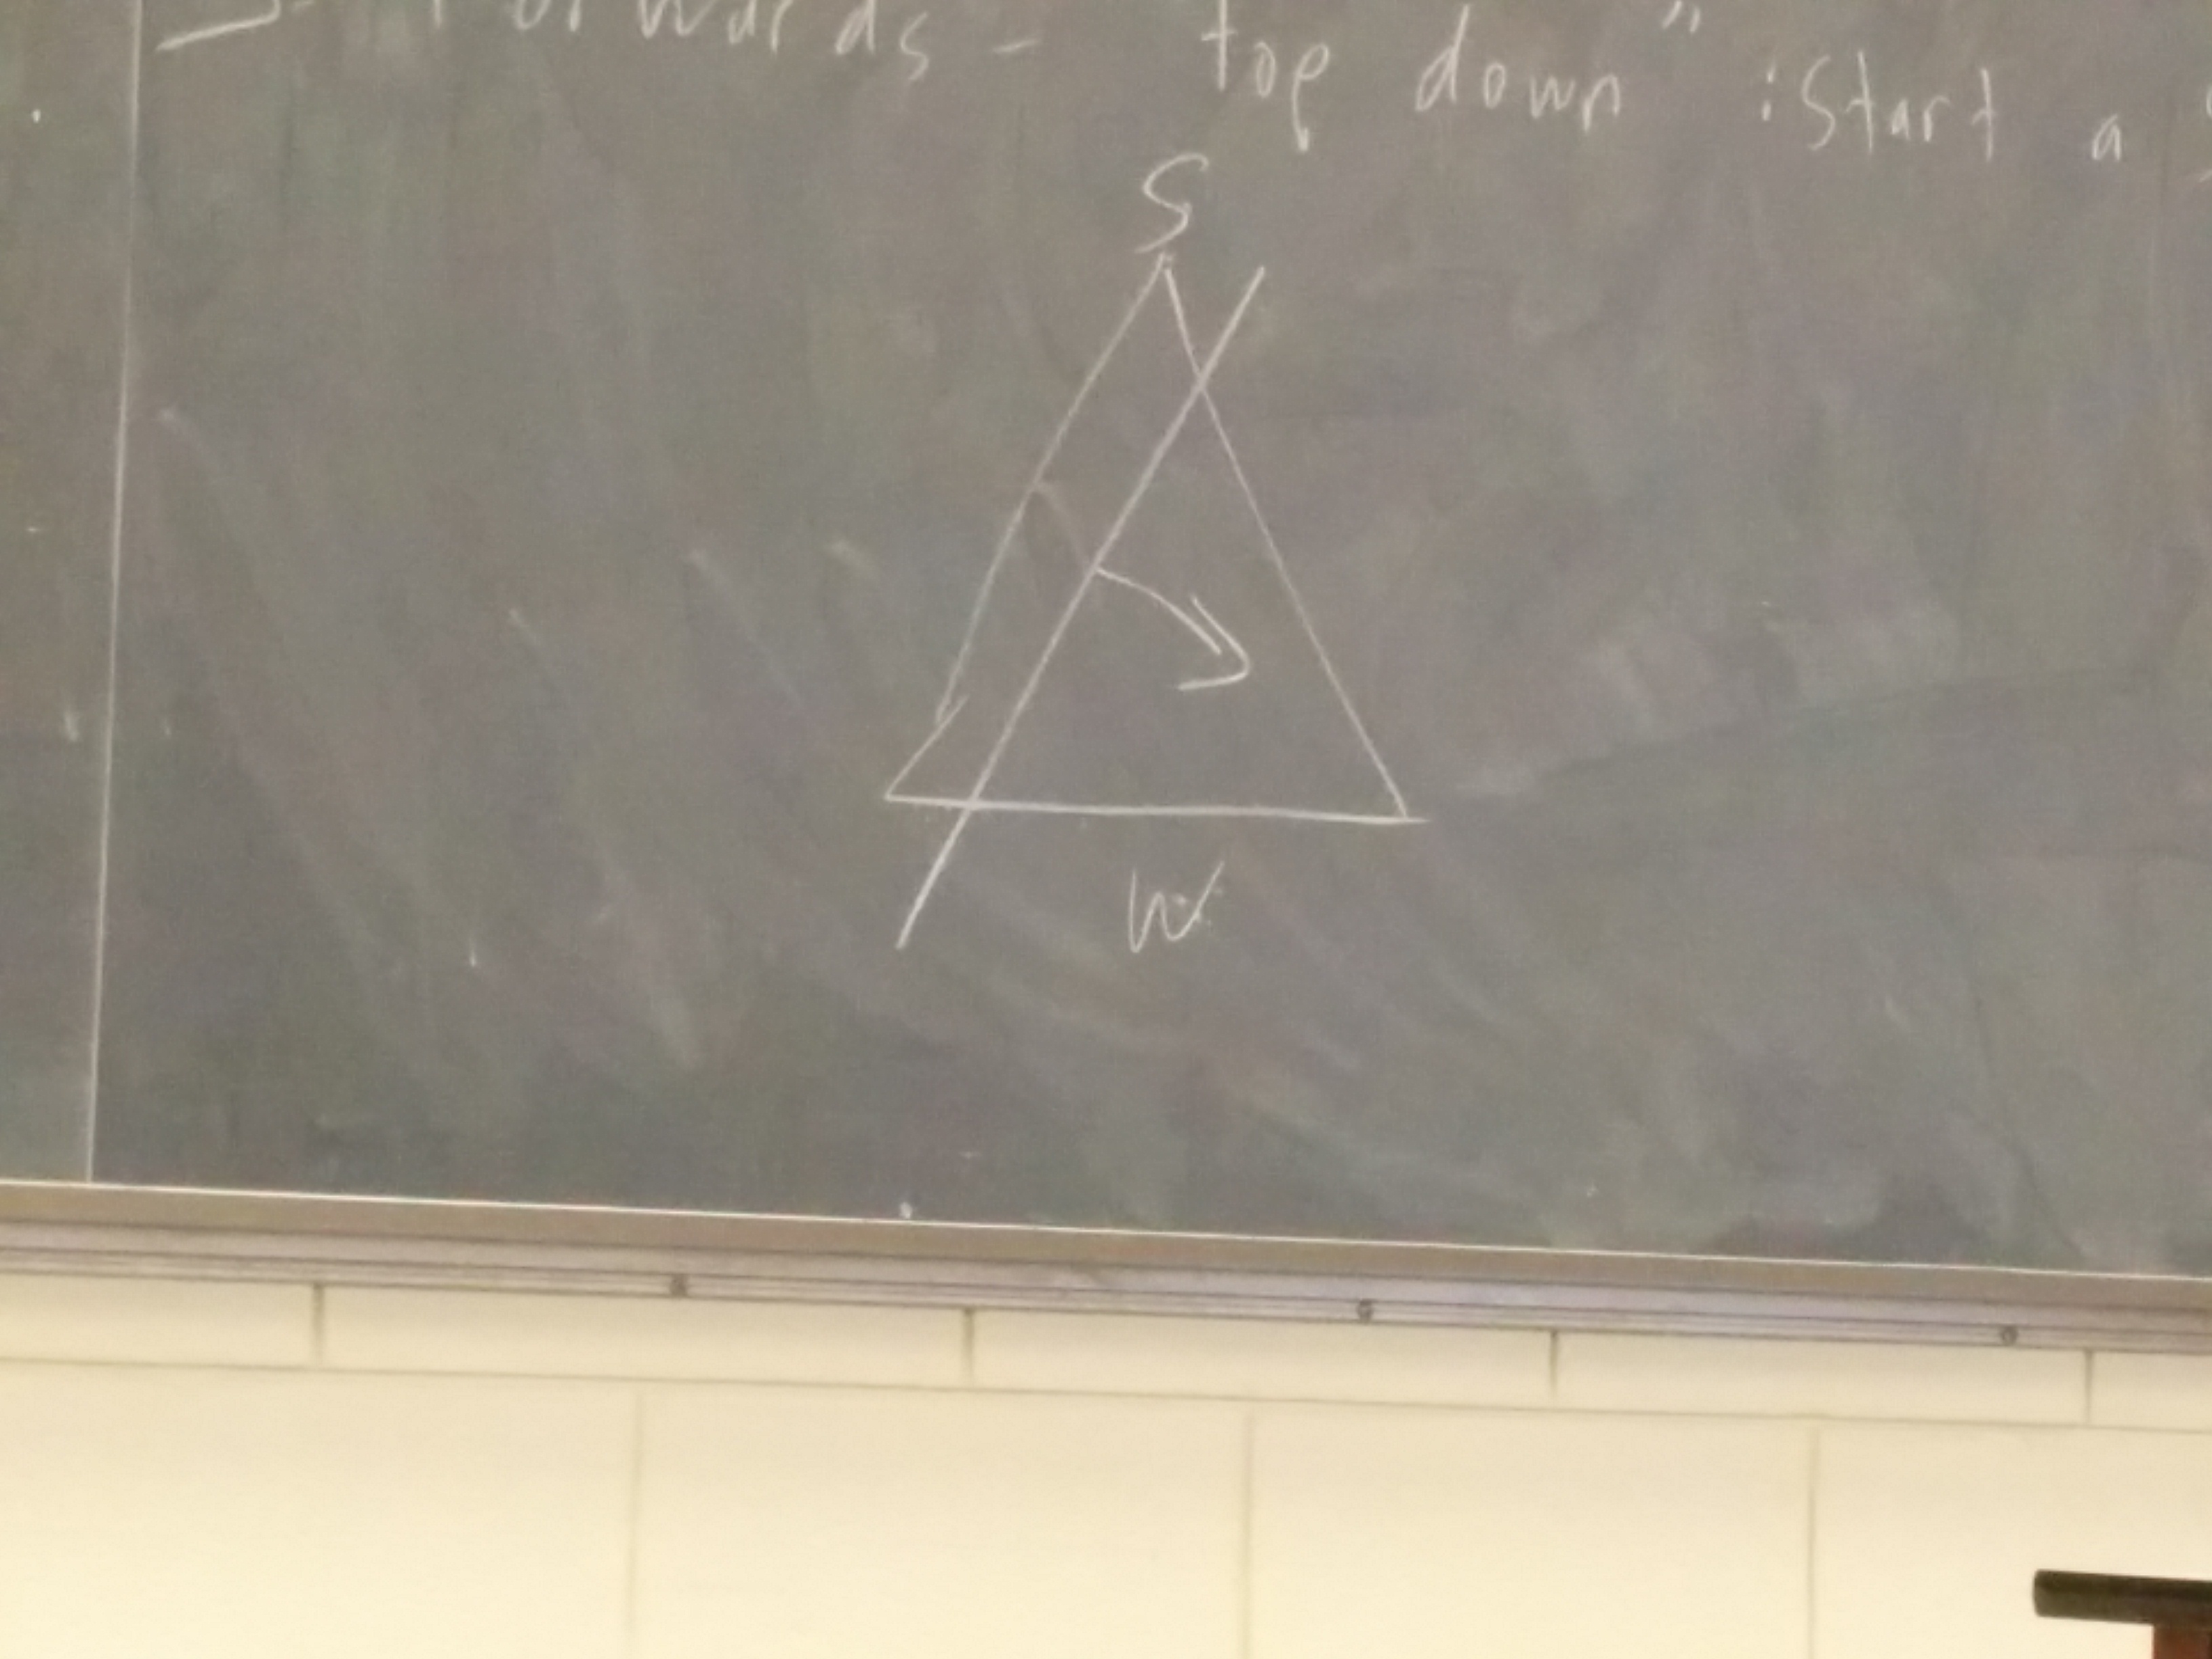 Forwards - "top down" : Start a
S
W